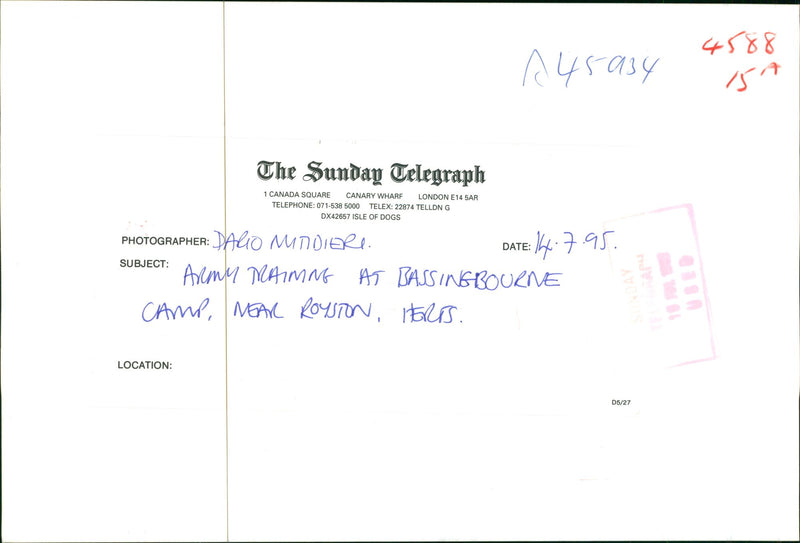 A45934
4588
15A
The Sunday Telegraph
1 CANADA SQUARE CANARY WHARF LONDON E14 5AR
TELEPHONE: 071-538 5000 TELEX: 22874 TELLDN G
DX42657 ISLE OF DOGS
PHOTOGRAPHER: DARIO MITIDIERI. DATE: 14.7.95.
SUBJECT: ARMY TRAINING AT BASSINGBOURNE
CAMP, NEAR ROYSTON, HERTS.
LOCATION:
D5/27
SUNDAY
TELEGRAPH
USED